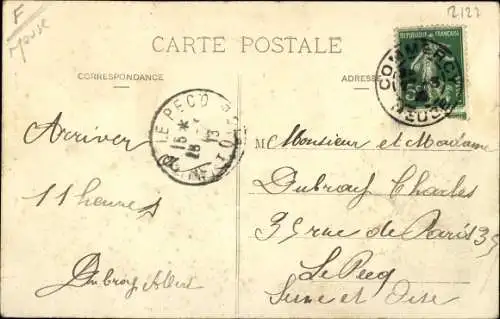 F
Meuse
2127
CARTE POSTALE
CORRESPONDANCE
ADRESSE
REPUBLIQUE FRANÇAISE
COMMERCY
MEUSE
LE PECQ
15*
13
Arriver
11 heures
Dubray Albert
M Monsieur et Madame
Dubray Charles
35 rue de Paris 35
Le Pecq
Seine et Oise